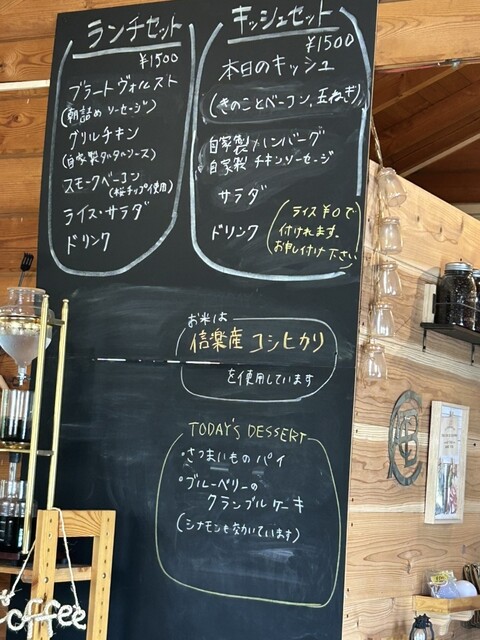 ランチセット
¥1500
ブラートヴルスト
(朝詰め ソーセージ)
グリルチキン
(自家製タルタルソース)
スモークベーコン
(桜チップ使用)
ライス・サラダ
ドリンク
キッシュセット
¥1500
本日のキッシュ
(きのことベーコン,玉ねぎ)
自家製ハンバーグ
自家製チキンソーセージ
サラダ
ドリンク
(ライス¥0で
付けれます。
お申し付け下さい)
お米は
信楽産コシヒカリ
を使用しています
TODAY'S DESSERT
・さつまいものパイ
・ブルーベリーの
クランブルケーキ
(シナモンも効いています)
Coffee